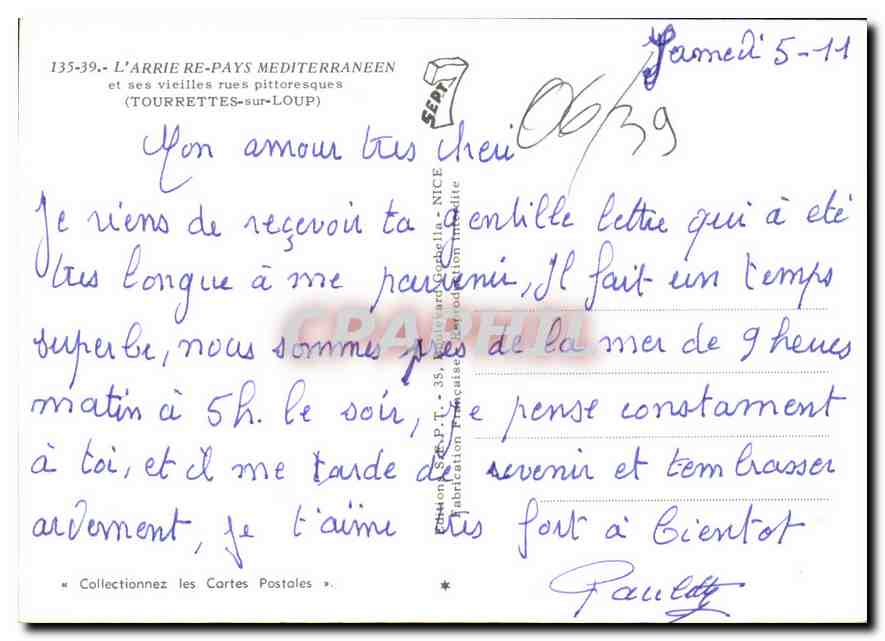 Samedi 5-11
135-39.- L'ARRIERE-PAYS MEDITERRANEEN
et ses vieilles rues pittoresques
(TOURRETTES-sur-LOUP)
SEPT 7
06/39
Mon amour tres cheri
Je viens de reçevoir ta gentille lettre qui à eté
tres longue à me parvenir, Il fait un temps
superbe, nous sommes près de la mer de 9 heures
matin à 5h. le soir, je pense constament
à toi, et il me tarde de revenir et tembrasser
ardement, je t'aime tres fort à bientot
Paulette
Editions S.E.P.T. - 35, Boulevard Gorbella - NICE
Fabrication Française - Reproduction Interdite
CPAPHIL
« Collectionnez les Cartes Postales ».